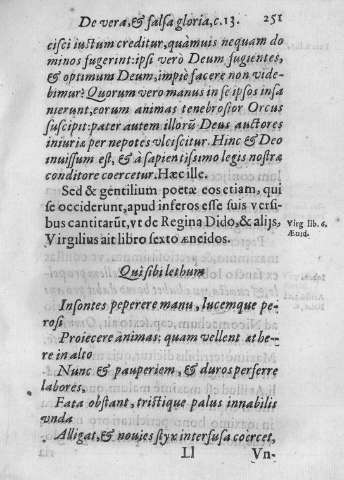 De vera, & falsa gloria, c. 13. 251
cisci iustum creditur, quāmuis nequam do
minos fugerint: ipsi verò Deum fugientes,
& optimum Deum, impiè facere non vide-
bimur? Quorum vero manus in se ipsos insa
nierunt, eorum animas tenebrosior Orcus
suscipit: pater autem illorū Deus auctores
iniuriæ per nepotes vlciscitur. Hinc & Deo
inuissum est, & à sapientissimo legis nostræ
conditore coercetur. Hæc ille.
Sed & gentilium poetæ eos etiam, qui
se occiderunt, apud inferos esse suis versi
bus cantitarūt, vt de Regina Dido, & alijs,
Virg lib. 6.
Æneid.
Virgilius ait libro sexto æneidos.
Qui sibi lethum
Insontes peperere manu, lucemque pe-
rosi
Proiecere animas: quam vellent æthe-
re in alto
Nunc & pauperiem, & duros perferre
labores.
Fata obstant, tristique palus innabilis
vnda
Alligat, & nouies styx interfusa coercet,
Ll Vn-